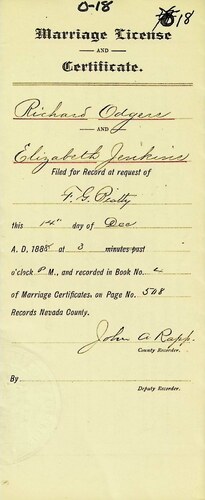 O-18
18
Marriage License
AND
Certificate.
Richard Odgers
AND
Elizabeth Jenkins
Filed for Record at request of
this 14th day of Dec
A. D. 188 at 3 minutes past
o'clock P M., and recorded in Book No.
of Marriage Certificates, on Page No. 508
Records Nevada County.
John A Rapp.
County Recorder.
By
Deputy Recorder.